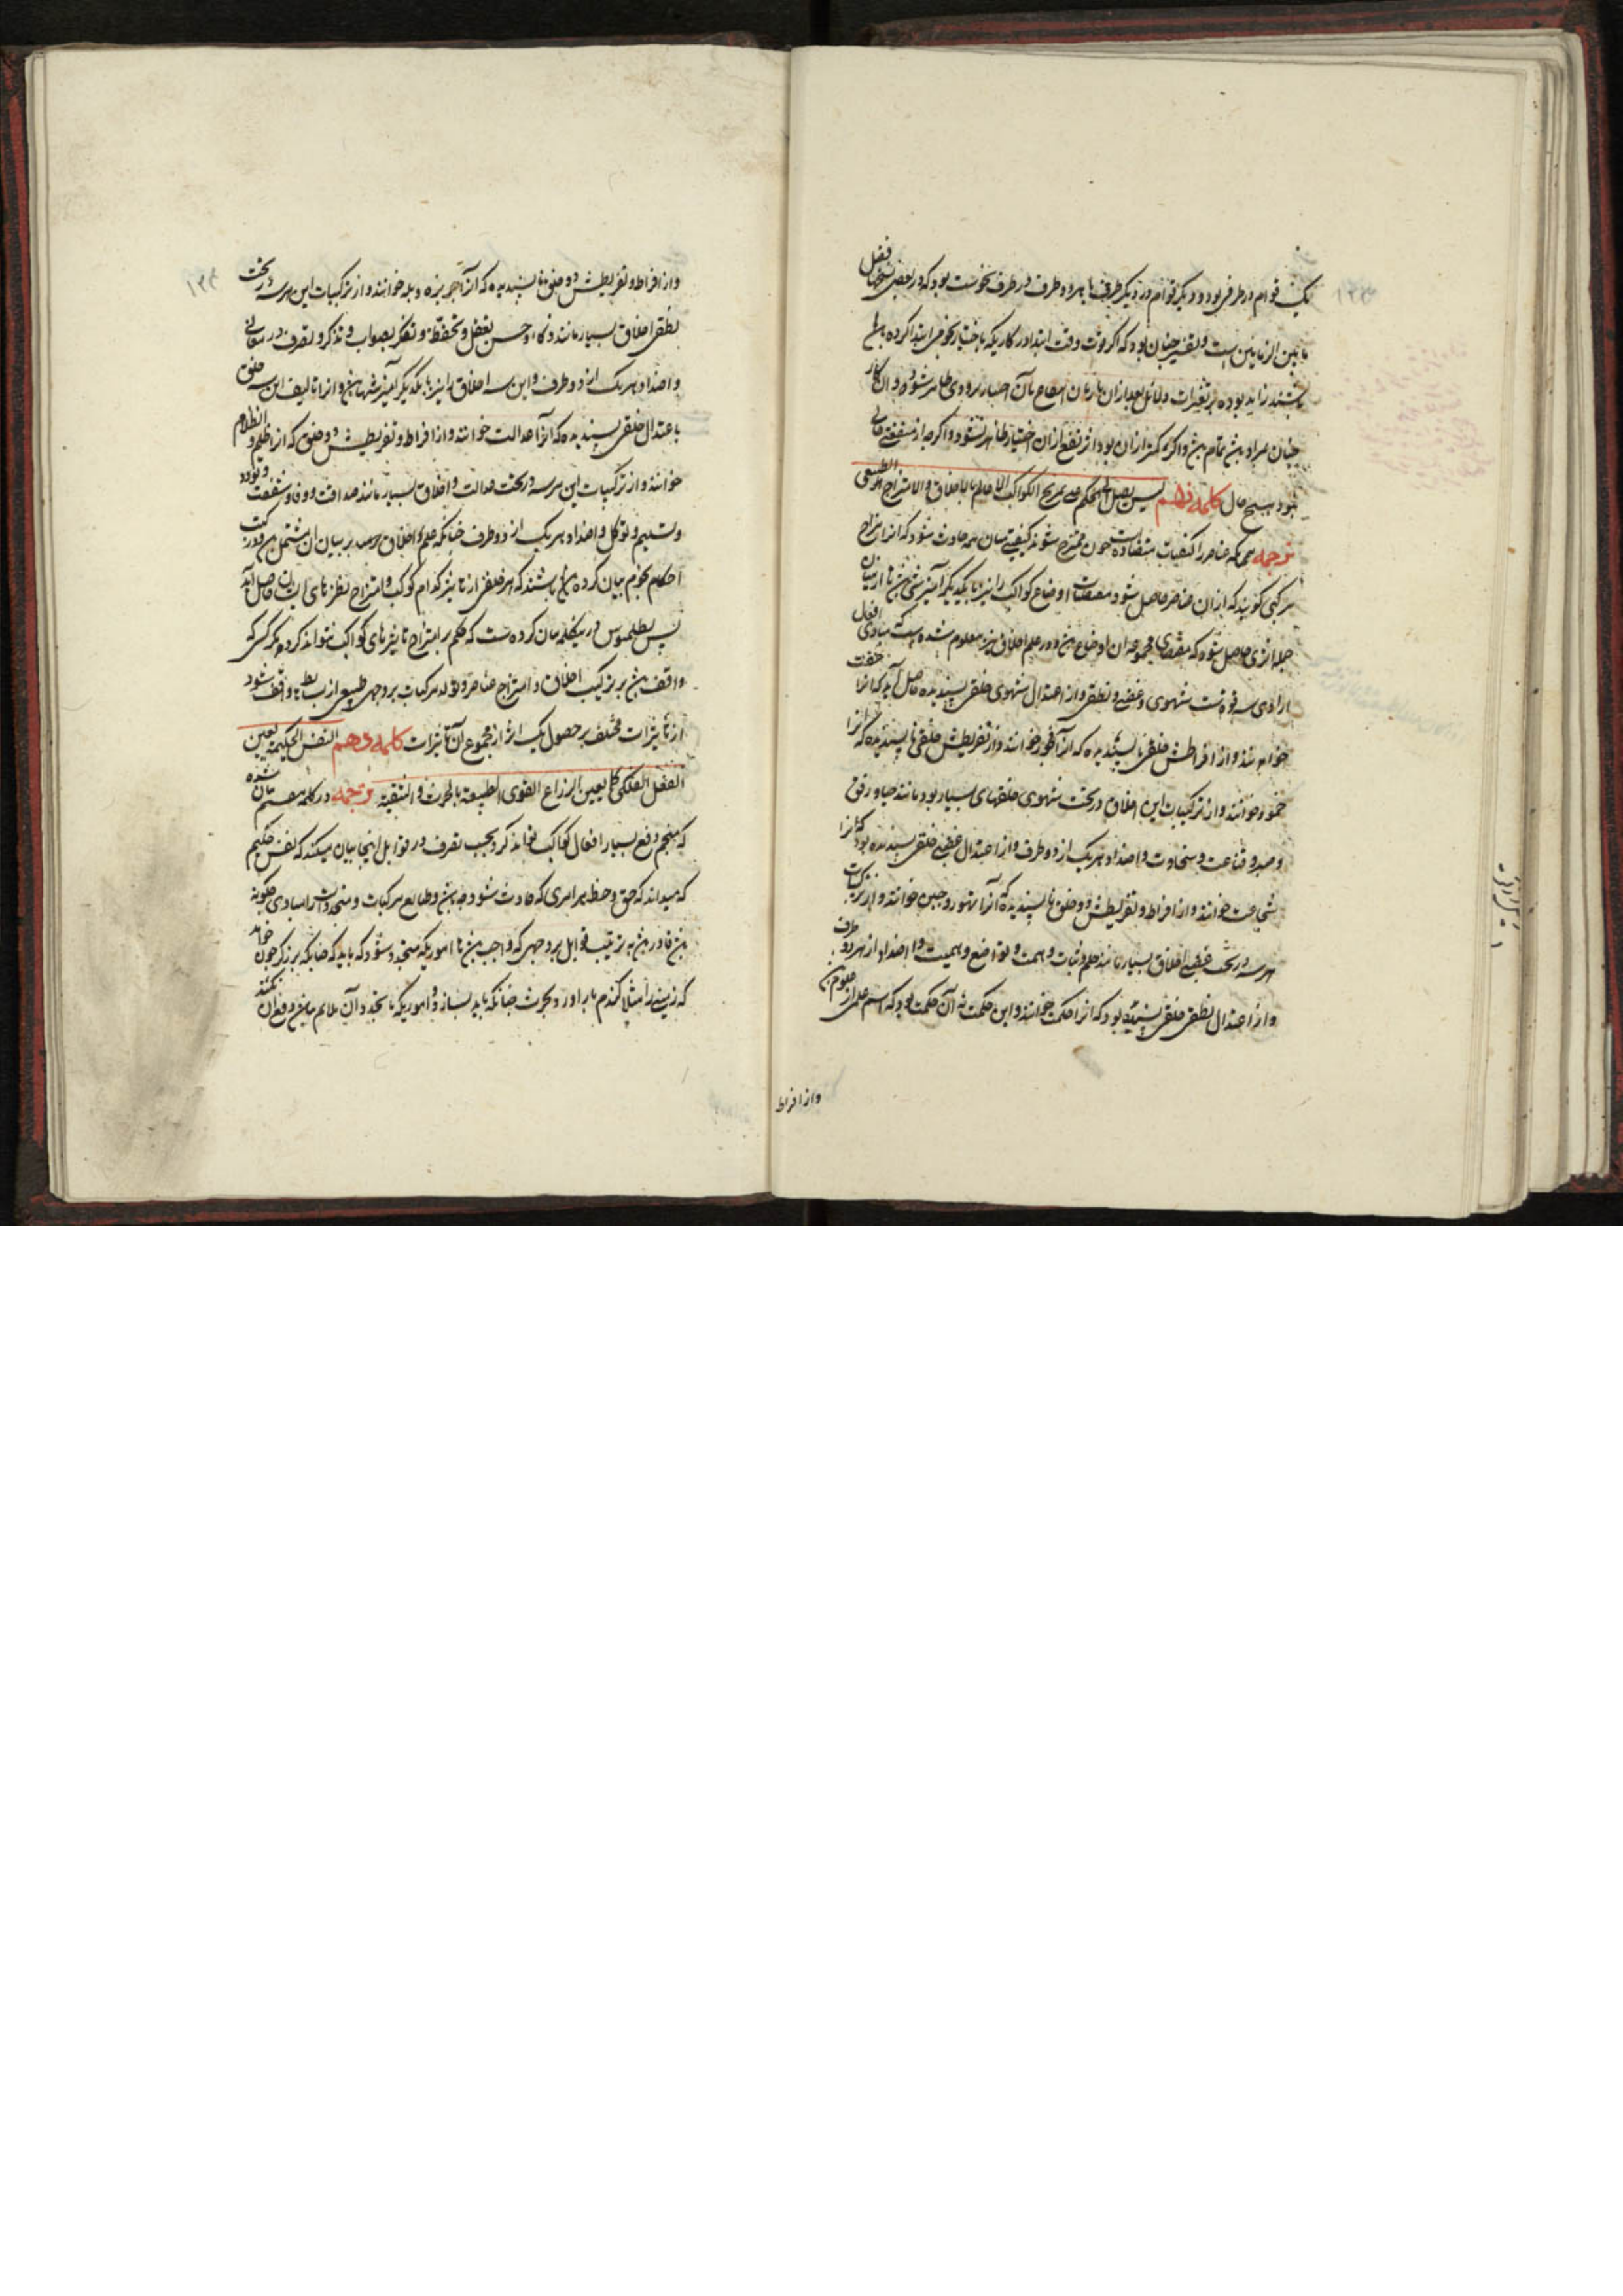 یک قوام در طرفی بود و دیگر قوام در دیگر طرف یا هر دو طرف در طرف نحوست بود که در بعضی نسخها فعل
ما بین الزمانین است و تفسیر چنان بود که اگر قوت وقت ابتدا در کاریکه باختیار نجومی ابتدا کرده
باشند زاید بوده بر تغیرات و دلائل بعد از آن تا زمان انتفاع بآن اختیار بزودی ظاهر شود و آن کار
چنان مراد تمام و اگر کمتر از آن بود اثر نفع از آن اختیار ظاهر نشود و اگرچه از منفعتی خالی
نبود بهیچ حال کلمه نهم لیس یصل الی الحکم علی تمزیج الکواکب الا عالم بالاخلاق و الامتزاج الطبیعی
ترجمه همچنانکه عناصر را کیفیات متضاده است چون ممتزج شوند کیفیتی میان همه حادث شود که آنرا مزاج
مرکبی گویند که از آن عناصر حاصل شود مقتضیات اوضاع کواکب را نیز با یکدیگر آمیزشی تا از میان
جمله اثری حاصل شود که مقتضای مجموعه آن اوضاع و در علم اخلاق نیز معلوم شده است مبادی افعال
ارادی سه قوتست شهوی و غضبی و نطقی و از اعتدال شهوی خلقی پسندیده حاصل آید که آنرا عفت
خوانند و از افراطش خلقی ناپسندیده که آنرا فجور خوانند و از تفریطش خلقی ناپسندیده که آنرا
خمود خوانند و از ترکیبات این اخلاق در تحت شهوی خلقهای بسیار بود مانند حیا و رفق
و صبر و قناعت و سخاوت و اضداد هر یک از دو طرف و از اعتدال غضبی خلقی پسندیده بود که آنرا
شجاعت خوانند و از افراط و تفریطش دو خلق ناپسندیده که آنرا تهور و جبن خوانند و از ترکیبات
هر سه در تحت غضبی اخلاق بسیار مانند حلم و ثبات و همت و تواضع و حمیت و اضداد از هر دو طرف
و از اعتدال نطقی خلقی پسندیده بود که آنرا حکمت خوانند و این حکمت نه آن حکمت بود که اسم علمی از علوم
و از افراط
و از افراط و تفریطش دو خلق ناپسندیده که آنرا جربزه و بله خوانند و از ترکیبات این هر سه در تحت
نطقی اخلاق بسیار مانند ذکا و حسن تعقل و تحفظ و تفکر بصواب و تذکر و تصرف در معانی
و اضداد هر یک از دو طرف و این سه اخلاق را نیز با یکدیگر آمیزشها و از تالیف این سه خلق
باعتدال خلقی پسندیده که آنرا عدالت خوانند و از افراط و تفریطش دو خلق که آنرا ظلم و انظلام
خوانند و از ترکیبات این هر سه در تحت عدالت و اخلاق بسیار مانند صداقت و وفا و شفقت و تودد
و تسلیم و توکل و اضداد هر یک از دو طرف چنانکه علم اخلاق بر بیان آن مشتمل و در کتب
احکام نجوم بیان کرده باشند که هر خلقی از تاثیر کدام کوکب و امتزاج نظرهای ایشان حاصل آید
پس بطلمیوس در این کلمه بیان کرده است که حکم بر امتزاج تاثیرهای کواکب نتواند کرد مگر کسی که
واقف بر ترکیب اخلاق و امتزاج عناصر و تولد مرکبات بر وجهی طبیعی از بسایط تا واقف شود
از تاثیرات مختلف بر حصول یک اثر از مجموع آن تاثیرات کلمه دهم النفس الحکیمة تعین
الفعل الفلکی کما یعین الزراع القوی الطبیعة بالحرث و التنقیة ترجمه در کلمه هشتم بیان شده
که منجم دفع بسیار افعال کواکب تواند کرد بحسب تصرف در قوابل اینجا بیان میکند که نفس حکیم
که میداند که حق و حظ هر امری که حادث شود و طبایع مرکبات و متجددات را مبادی چگونه
قادر بر ترتیب قوابل بر وجهی که واجب تا اموریکه متجدد شود که باید که چنانکه برزگر چون خواهد
که زمینی را مثلا گندم بار آورد بحرث چنانکه باید بسازد و اموریکه تا تجدد آن ملایم و دفع آن نکند